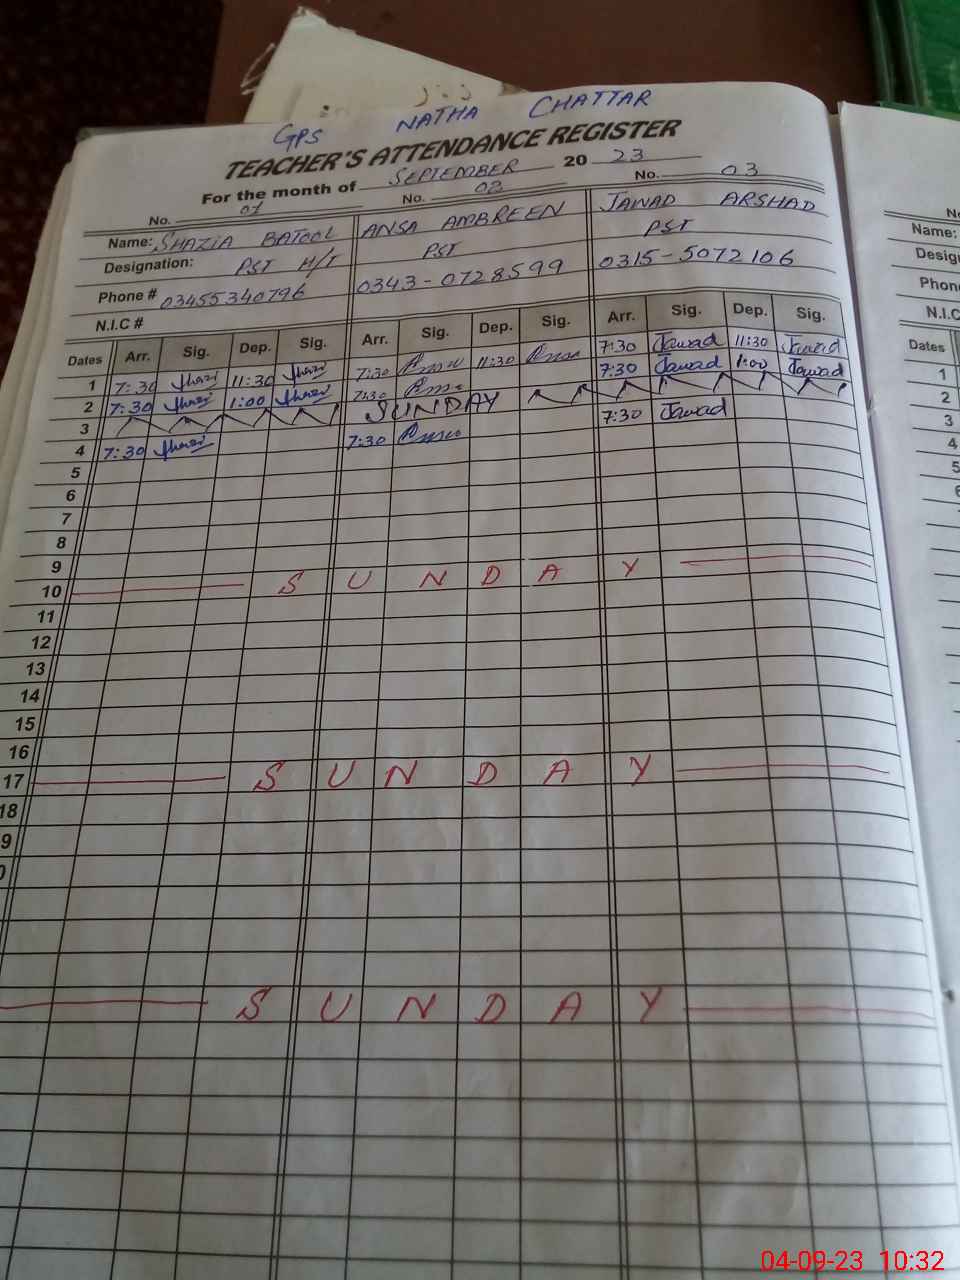 GPS NATHA CHATTAR
TEACHER'S ATTENDANCE REGISTER
For the month of SEPTEMBER 20 23
No. 01 No. 02 No. 03
Name: SHAZIA BATOOL ANSA AMBREEN JAWAD ARSHAD
Designation: PST H/T PST PST
Phone # 03455340796 0343-0728599 0315-5072106
N.I.C #
Dates Arr. Sig. Dep. Sig. Arr. Sig. Dep. Sig. Arr. Sig. Dep. Sig.
1 7:30 11:30 7:30 11:30 7:30 Jawad 11:30 Jawad
2 7:30 1:00 7:30 7:30 Jawad 1:00 Jawad
3 SUNDAY
4 7:30 7:30 7:30 Jawad
5
6
7
8
9
10 S U N D A Y
11
12
13
14
15
16
17 S U N D A Y
18
9
0
S U N D A Y
No
Name:
Desig
Phon
N.I.C
Dates
1
2
3
4
5
6
04-09-23 10:32